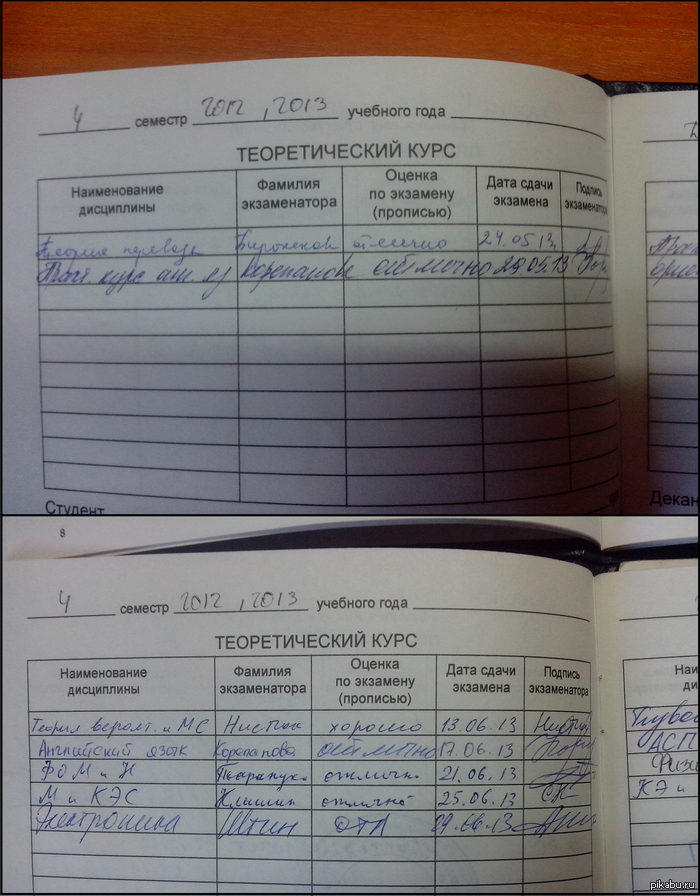 4 семестр 2012, 2013 учебного года
ТЕОРЕТИЧЕСКИЙ КУРС
Наименование дисциплины Фамилия экзаменатора Оценка по экзамену (прописью) Дата сдачи экзамена Подпись экзаменатора
Теория перевода отлично 24.05.13
курс отлично 29.05.13
Студент Декан
8
4 семестр 2012, 2013 учебного года
ТЕОРЕТИЧЕСКИЙ КУРС
Наименование дисциплины Фамилия экзаменатора Оценка по экзамену (прописью) Дата сдачи экзамена Подпись экзаменатора
Теория вероят. и МС хорошо 13.06.13
Английский язык отлично 17.06.13
ФОМ и Н отлично 21.06.13
М и КЭС Клишин отлично 25.06.13
Электроника Штин ОТЛ 29.06.13
АСП
КЭ и
pikabu.ru